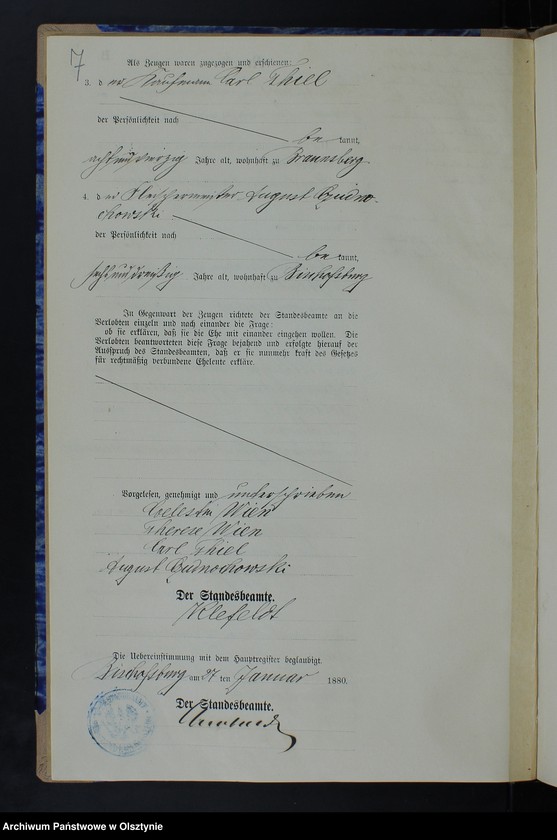 7
Als Zeugen waren zugezogen und erschienen:
3. der Kaufmann Carl Thiel
der Persönlichkeit nach
be kannt,
achtundvierzig Jahre alt, wohnhaft zu Braunsberg
4. der Fleischermeister August Cudno-
chowski
der Persönlichkeit nach
be kannt,
sechsunddreißig Jahre alt, wohnhaft zu Bischofsburg
In Gegenwart der Zeugen richtete der Standesbeamte an die
Verlobten einzeln und nach einander die Frage:
ob sie erklären, daß sie die Ehe mit einander eingehen wollen. Die
Verlobten beantworteten diese Frage bejahend und erfolgte hierauf der
Ausspruch des Standesbeamten, daß er sie nunmehr kraft des Gesetzes
für rechtmäßig verbundene Eheleute erkläre.
Vorgelesen, genehmigt und unterschrieben
Celestin Wien
Therese Wien
Carl Thiel
August Cudnochowski
Der Standesbeamte.
Klefeldt
Die Uebereinstimmung mit dem Hauptregister beglaubigt
Bischofsburg am 27 ten Januar 1880.
Der Standesbeamte.
Archiwum Państwowe w Olsztynie